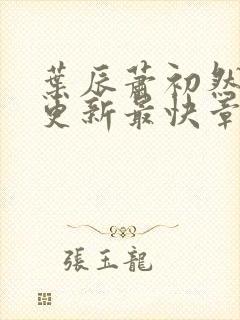 葉辰蕭初然
更新最快章
張玉龍